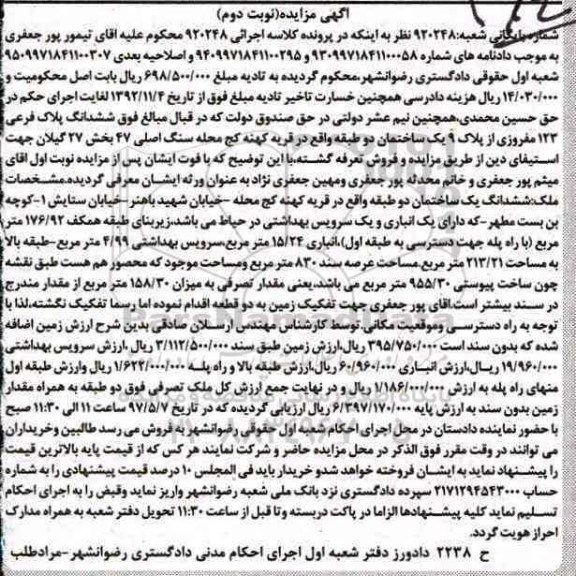 آگهی مزایده(نوبت دوم)
شماره بایگانی شعبه:۹۲۰۲۴۸ نظر به اینکه در پرونده کلاسه اجرائی ۹۲۰۲۴۸ محکوم علیه اقای تیمور پور جعفری
به موجب دادنامه های شماره ۹۳۰۹۹۷۱۸۴۱۱۰۰۰۵۸ و ۹۴۰۹۹۷۱۸۴۱۱۰۰۲۹۵ و اصلاحیه بعدی ۹۵۰۹۹۷۱۸۴۱۱۰۰۳۰۷
شعبه اول حقوقی دادگستری رضوانشهر،محکوم گردیده به تادیه مبلغ ۶۹۸/۵۰۰/۰۰۰ ریال بابت اصل محکومیت و
۱۴/۰۳۰/۰۰۰ ریال هزینه دادرسی همچنین خسارت تاخیر تادیه مبلغ فوق از تاریخ ۱۳۹۲/۱۱/۴ لغایت اجرای حکم در
حق حسین محمدی،همچنین نیم عشر دولتی در حق صندوق دولت که در قبال مبالغ فوق ششدانگ پلاک فرعی
۱۲۳ مفروزی از پلاک ۹ یک ساختمان دو طبقه واقع در قریه کهنه کج محله سنگ اصلی ۴۷ بخش ۲۷ گیلان جهت
استیفای دین از طریق مزایده و فروش تعرفه گشته،با این توضیح که با فوت ایشان پس از مزایده نوبت اول اقای
میثم پور جعفری و خانم محدثه پور جعفری ومهین جعفری نژاد به عنوان ورثه ایشان معرفی گردیده.مشخصات
ملک:ششدانگ یک ساختمان دو طبقه واقع در قریه کهنه کج محله -خیابان شهید باهنر-خیابان ستایش ۱-کوچه
بن بست مطهر-که دارای یک انباری و یک سرویس بهداشتی در حیاط می باشد،زیربنای طبقه همکف ۱۷۶/۹۲ متر
مربع (با راه پله جهت دسترسی به طبقه اول)،انباری ۱۵/۲۴ متر مربع،سرویس بهداشتی ۴/۹۹ متر مربع-طبقه بالا
به مساحت ۲۱۳/۲۱ متر مربع.مساحت عرصه سند ۸۳۰ متر مربع ومساحت موجود که محصور هم هست طبق نقشه
چون ساخت پیوستی ۹۵۵/۳۰ متر مربع می باشد،یعنی مقدار تصرفی به میزان ۱۵۸/۳۰ متر مربع از مقدار مندرج
در سند بیشتر است.اقای پور جعفری جهت تفکیک زمین به دو قطعه اقدام نموده اما رسما تفکیک نگشته،لذا با
توجه به راه دسترسی وموقعیت مکانی،توسط کارشناس مهندس ارسلان صادقی بدین شرح ارزش زمین اضافه
شده که بدون سند است ۳۹۵/۷۵۰/۰۰۰ ریال،ارزش زمین طبق سند ۳/۱۱۲/۵۰۰/۰۰۰ ریال،ارزش سرویس بهداشتی
۱۹/۹۶۰/۰۰۰ ریال،ارزش انباری ۶۰/۹۶۰/۰۰۰ ریال،ارزش طبقه بالا و راه پله ۱/۶۲۲/۰۰۰/۰۰۰ ریال وارزش طبقه اول
منهای راه پله به ارزش ۱/۱۸۶/۰۰۰/۰۰۰ ریال و در نهایت جمع ارزش کل ملک تصرفی فوق دو طبقه به همراه مقدار
زمین بدون سند به ارزش پایه ۶/۳۹۷/۱۷۰/۰۰۰ ریال ارزیابی گردیده که در تاریخ ۹۷/۵/۷ ساعت ۱۱ الی ۱۱:۳۰ صبح
با حضور نماینده دادستان در محل اجرای احکام شعبه اول حقوقی رضوانشهر به فروش می رسد طالبین وخریداران
می توانند در وقت مقرر فوق الذکر در محل مزایده حاضر و شرکت نمایند هر کس که از قیمت پایه بالاترین قیمت
را پیشنهاد نماید به ایشان فروخته خواهد شدو خریدار باید فی المجلس ۱۰ درصد قیمت پیشنهادی را به شماره
حساب ۲۱۷۱۲۹۴۵۴۳۰۰۰ سپرده دادگستری نزد بانک ملی شعبه رضوانشهر واریز نماید وقبض را به اجرای احکام
تسلیم نماید کلیه پیشنهادها الزاما در پاکت دربسته وتا قبل از ساعت ۱۱:۳۰ تحویل دفتر شعبه به همراه مدارک
احراز هویت گردد.
ح ۲۲۳۸ دادورز دفتر شعبه اول اجرای احکام مدنی دادگستری رضوانشهر-مرادطلب